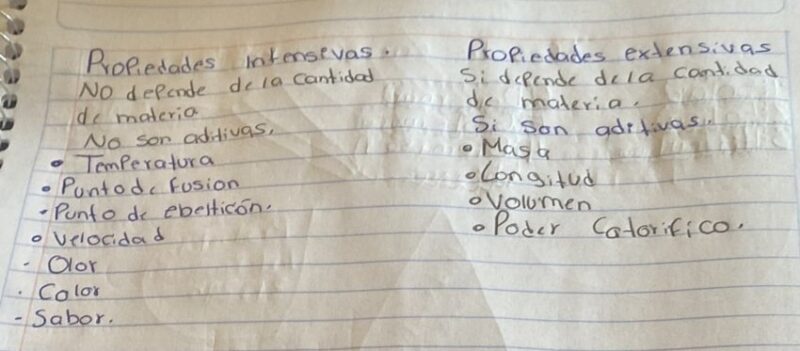 Propiedades intensevas.
No depende de la cantidad
de materia
No son aditivas.
• Temperatura
• Punto de fusion
- Punto de ebelticón.
• Velocidad
- Olor
· Color
- Sabor.
Propiedades extensivas
Si depende de la cantidad
de materia.
Si son aditivas.
• Masa
• Longitud
• Volumen
• Poder Calorifico.